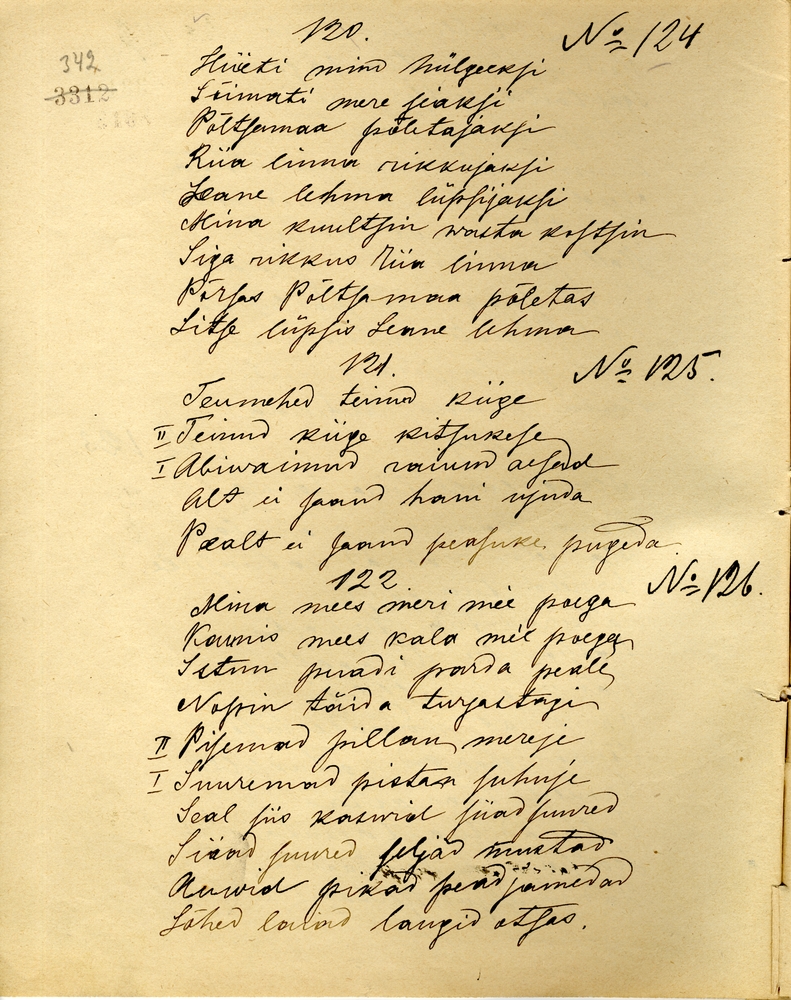 120. No 124
342
3312
Hüeti mind hülgeeksi
Sõimati mere seaksi
Põltsamaa põletajaksi
Riia linna rikkujaksi
Seane lehma lüpsijaksi
Mina kuultsin wasta kostsin
Siga rikkus Riia linna
Põrsas Põltsamaa põletas
Litse lüpsis Seane lehma
121. No 125.
Teumehed teinud kiige
II Teinud kiige kitsukese
I Abiwaimud raiund aesad
Alt ei saand hani ujuda
Pealt ei saand peasuke pugeda
122 No 126.
Mina mees meri mee poega
Kaunis mees kala mee poega
Istun puadi parda peale
Nopin täida turjastagi
II Pisemad pillan mereje
I Suuremad pistan suhuje
Seal siis kaswid siiad suured
Siiad suured seljad mustad
Auwid pikad pead jämedad
Lõhed laiad laugid otsas.